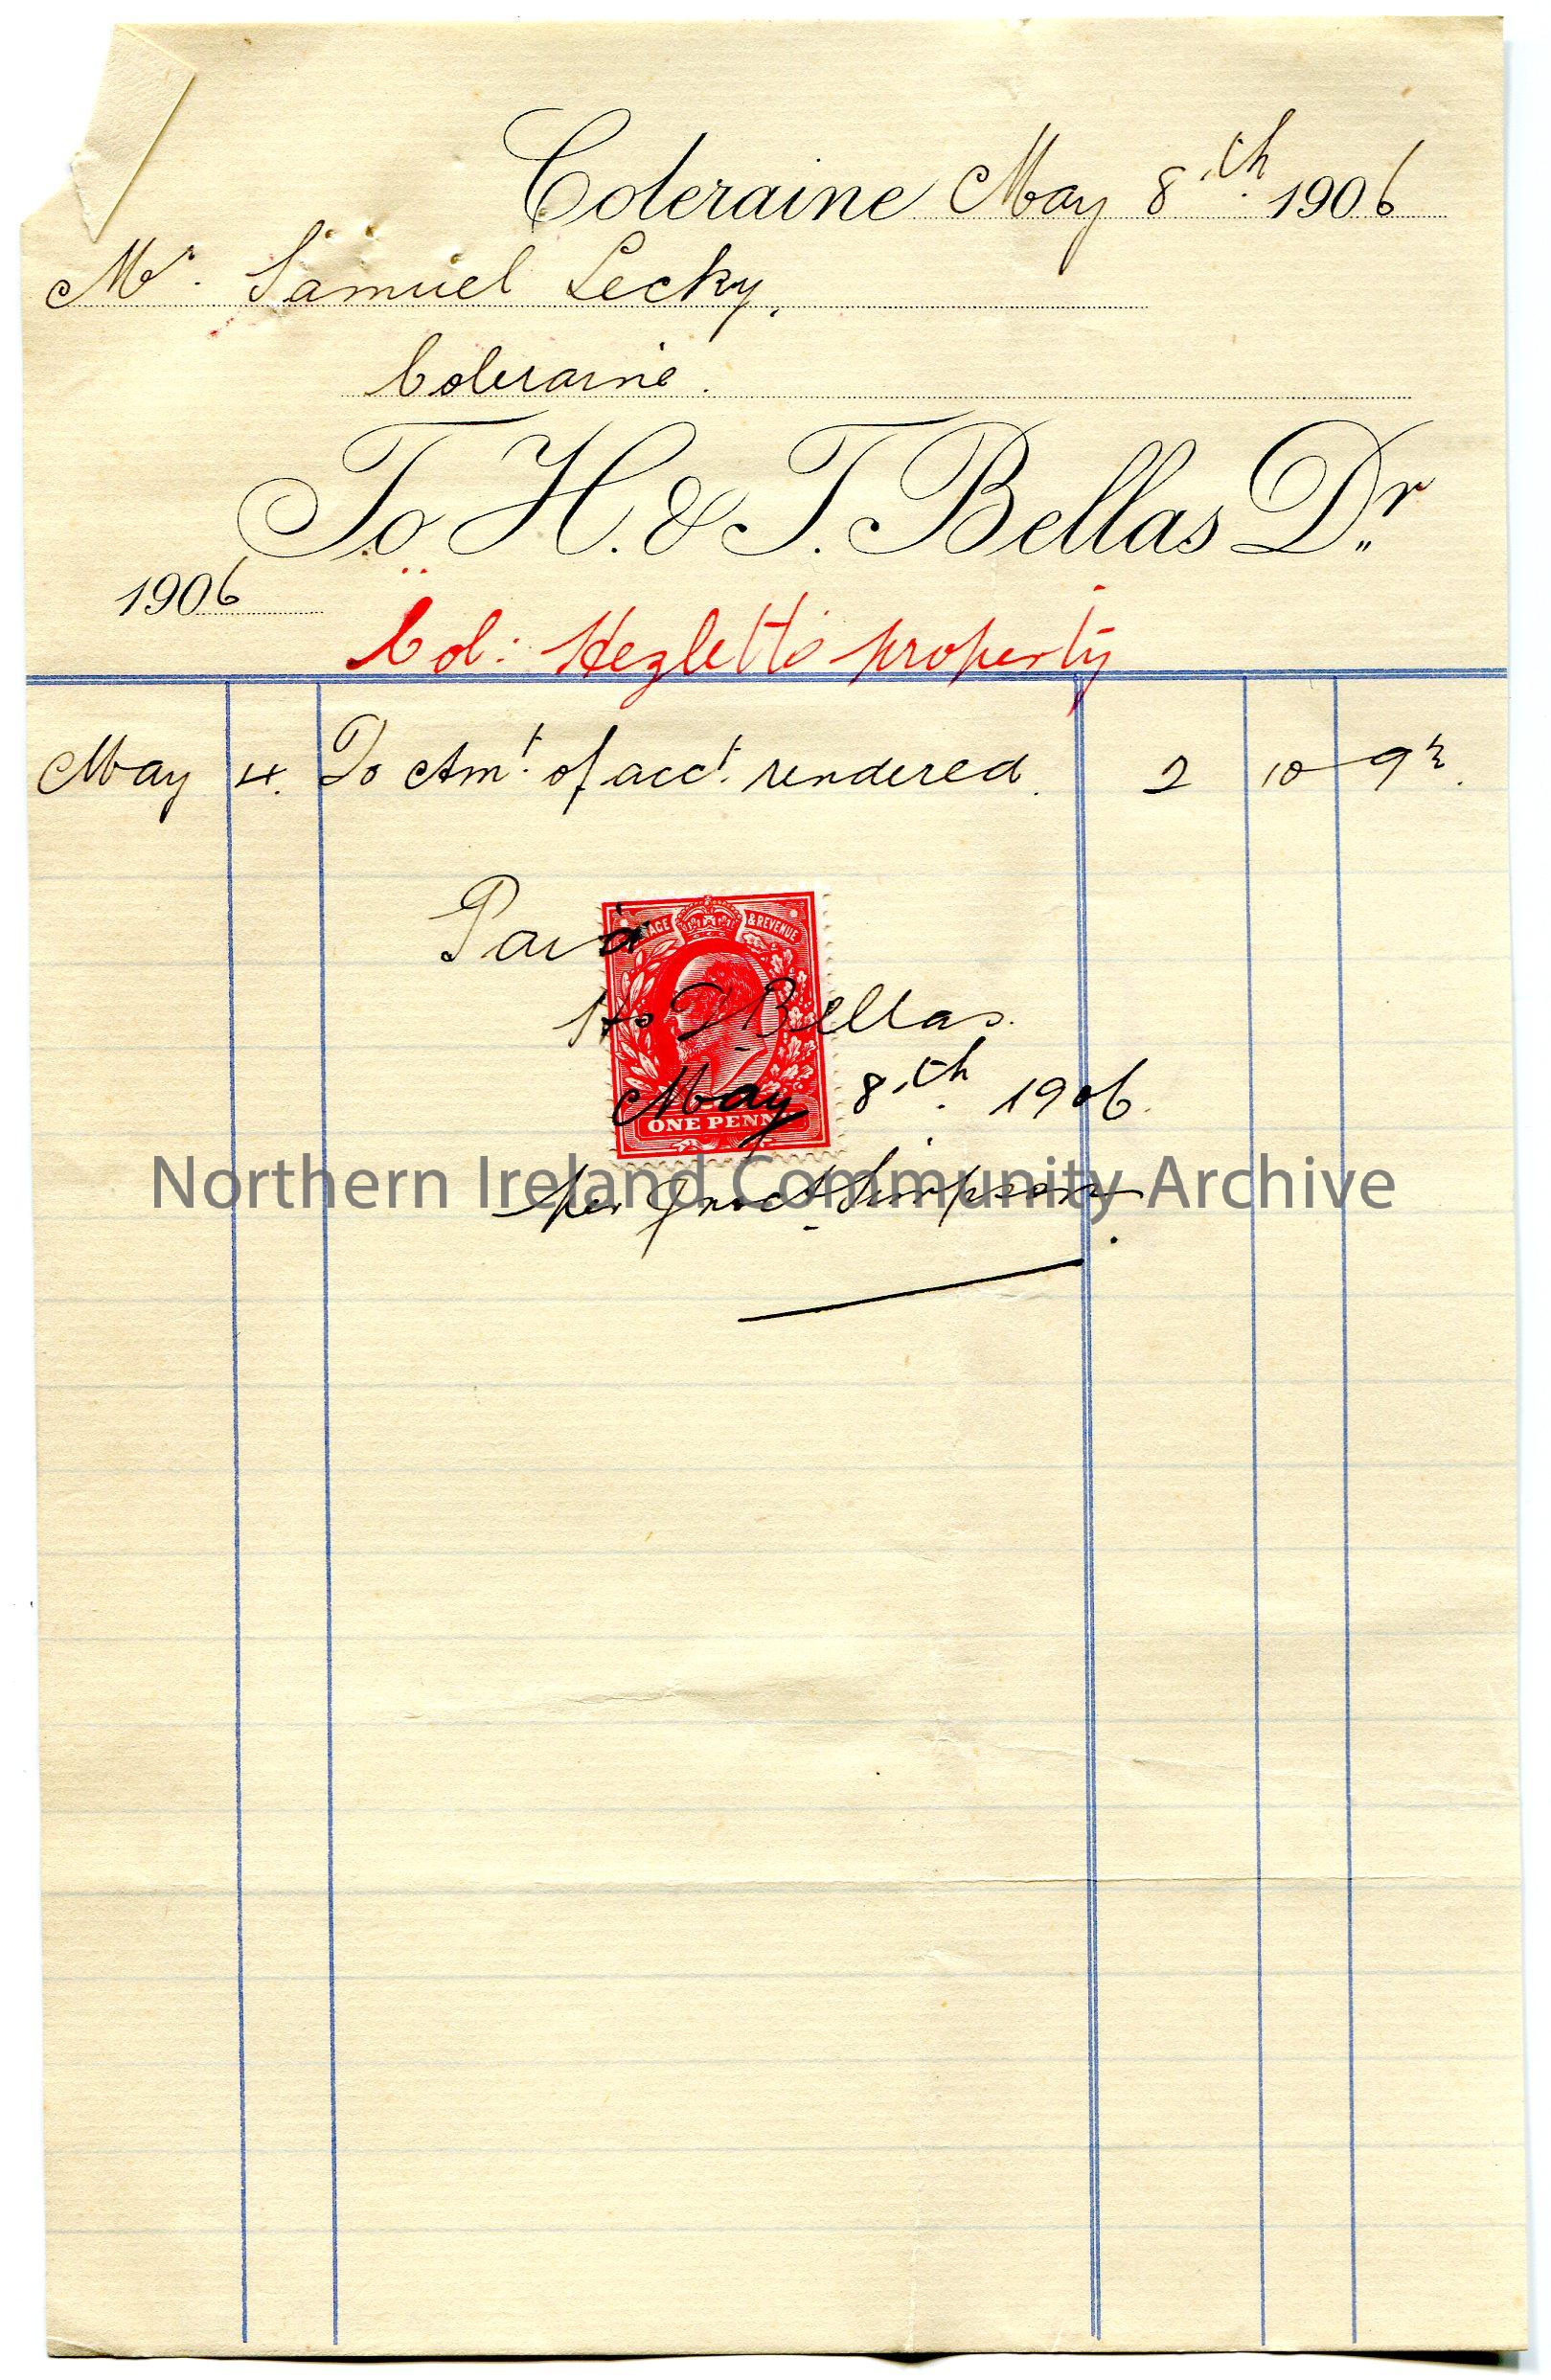 Coleraine May 8th 1906
Mr. Samuel Lecky,
Coleraine.
To H. & T. Bellas Dr
1906
Col: Hezletts property
May 4. To Amt. of acct. rendered. 2 10 9½.
Paid
POSTAGE & REVENUE
H & T Bellas.
May 8th. 1906.
ONE PENNY
Northern Ireland Community Archive
per Simpson